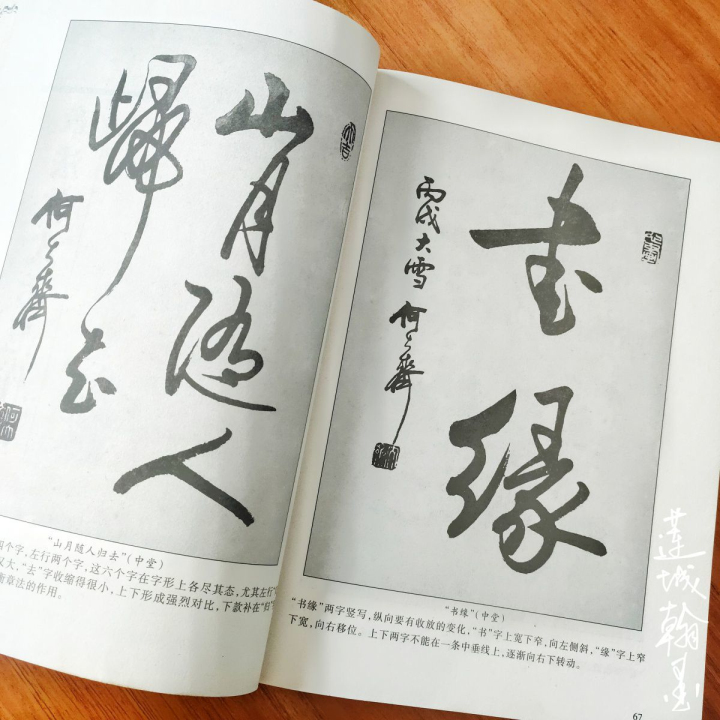 山月随人
歸去
何
"山月随人归去"(中堂)
四个字,左行两个字,这六个字在字形上各尽其态,尤其左行"
又大,"去"字收缩得很小,上下形成强烈对比,下款补在"归"
章法的作用。
书缘
丙戌大雪 何
"书缘"(中堂)
"书缘"两字竖写,纵向要有收放的变化,"书"字上宽下窄,向左侧斜,"缘"字上窄
下宽,向右移位。上下两字不能在一条中垂线上,逐渐向右下转动。
67
莲城翰墨